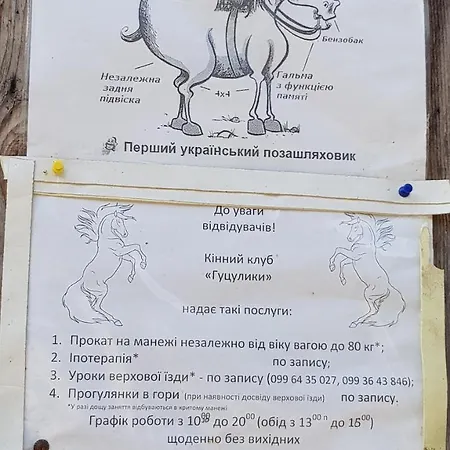 Бензобак
Незалежна
задня
підвіска
Гальма
з функцією
памяті
4x4
Перший український позашляховик
До уваги
відвідувачів!
Кінний клуб
«Гуцулики»
надає такі послуги:
1. Прокат на манежі незалежно від віку вагою до 80 кг*;
2. Іпотерапія* по запису;
3. Уроки верхової їзди* - по запису (099 64 35 027, 099 36 43 846);
4. Прогулянки в гори (при наявності досвіду верхової їзди) по запису.
*У разі дощу заняття відбуваються в критому манежі
Графік роботи з 10⁰⁰ до 20⁰⁰ (обід з 13⁰⁰ до 15⁰⁰)
щоденно без вихідних